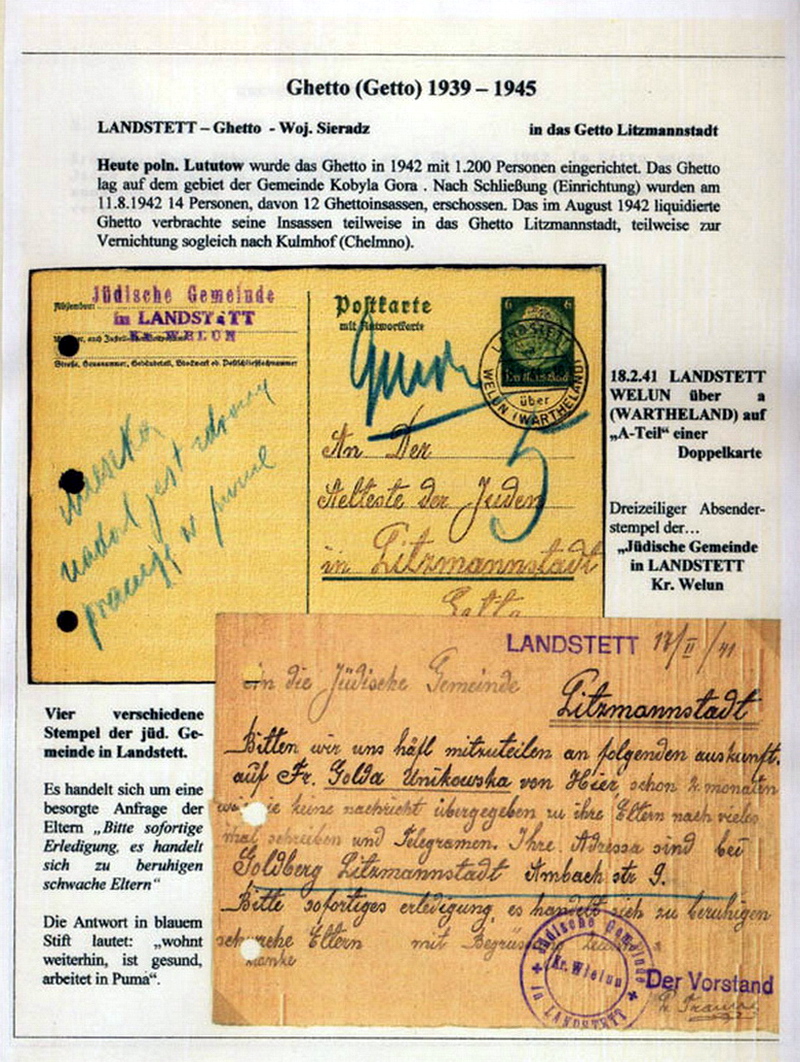 Ghetto (Getto) 1939 – 1945
LANDSTETT – Ghetto - Woj. Sieradz
in das Getto Litzmannstadt
Heute poln. Lututow wurde das Ghetto in 1942 mit 1.200 Personen eingerichtet. Das Ghetto
lag auf dem gebiet der Gemeinde Kobyla Gora . Nach Schließung (Einrichtung) wurden am
11.8.1942 14 Personen, davon 12 Ghettoinsassen, erschossen. Das im August 1942 liquidierte
Ghetto verbrachte seine Insassen teilweise in das Ghetto Litzmannstadt, teilweise zur
Vernichtung sogleich nach Kulmhof (Chelmno).
Absender:
Jüdische Gemeinde
in LANDSTATT
Kr. WELUN
Straße, Hausnummer, Gebäudeteil, Stockwerk od. Postschließfachnummer
nadal jest zdrowa
pracuje w
Postkarte
mit Antwortkarte
6 6
LANDSTETT
über
WELUN (WARTHELAND)
5
An Der
Aelteste der Juden
in Litzmannstadt
Getto
18.2.41 LANDSTETT
WELUN über a
(WARTHELAND) auf
„A-Teil“ einer
Doppelkarte
Dreizeiliger Absender-
stempel der…
„Jüdische Gemeinde
in LANDSTETT
Kr. Welun
LANDSTETT 17/II/41
An die Jüdische Gemeinde
Litzmannstadt
Bitten wir uns höfl mitzuteilen an folgenden auskunft.
auf Fr. Golda Unikowska von Hier schon 2 monaten
sie keine nachricht übergegeben zu ihre Eltern nach vieles
mal schreiben und Telegramen. Ihre Adressa sind bei
Goldberg Litzmannstadt Ambach str 9.
Bitte sofortiges erledigung, es handelt sich zu beruhigen
schwache Eltern mit
Jüdische Gemeinde
Kr. Welun
in LANDSTETT
Der Vorstand
Vier verschiedene
Stempel der jüd. Ge-
meinde in Landstett.
Es handelt sich um eine
besorgte Anfrage der
Eltern „Bitte sofortige
Erledigung, es handelt
sich zu beruhigen
schwache Eltern“
Die Antwort in blauem
Stift lautet: „wohnt
weiterhin, ist gesund,
arbeitet in Puma“.